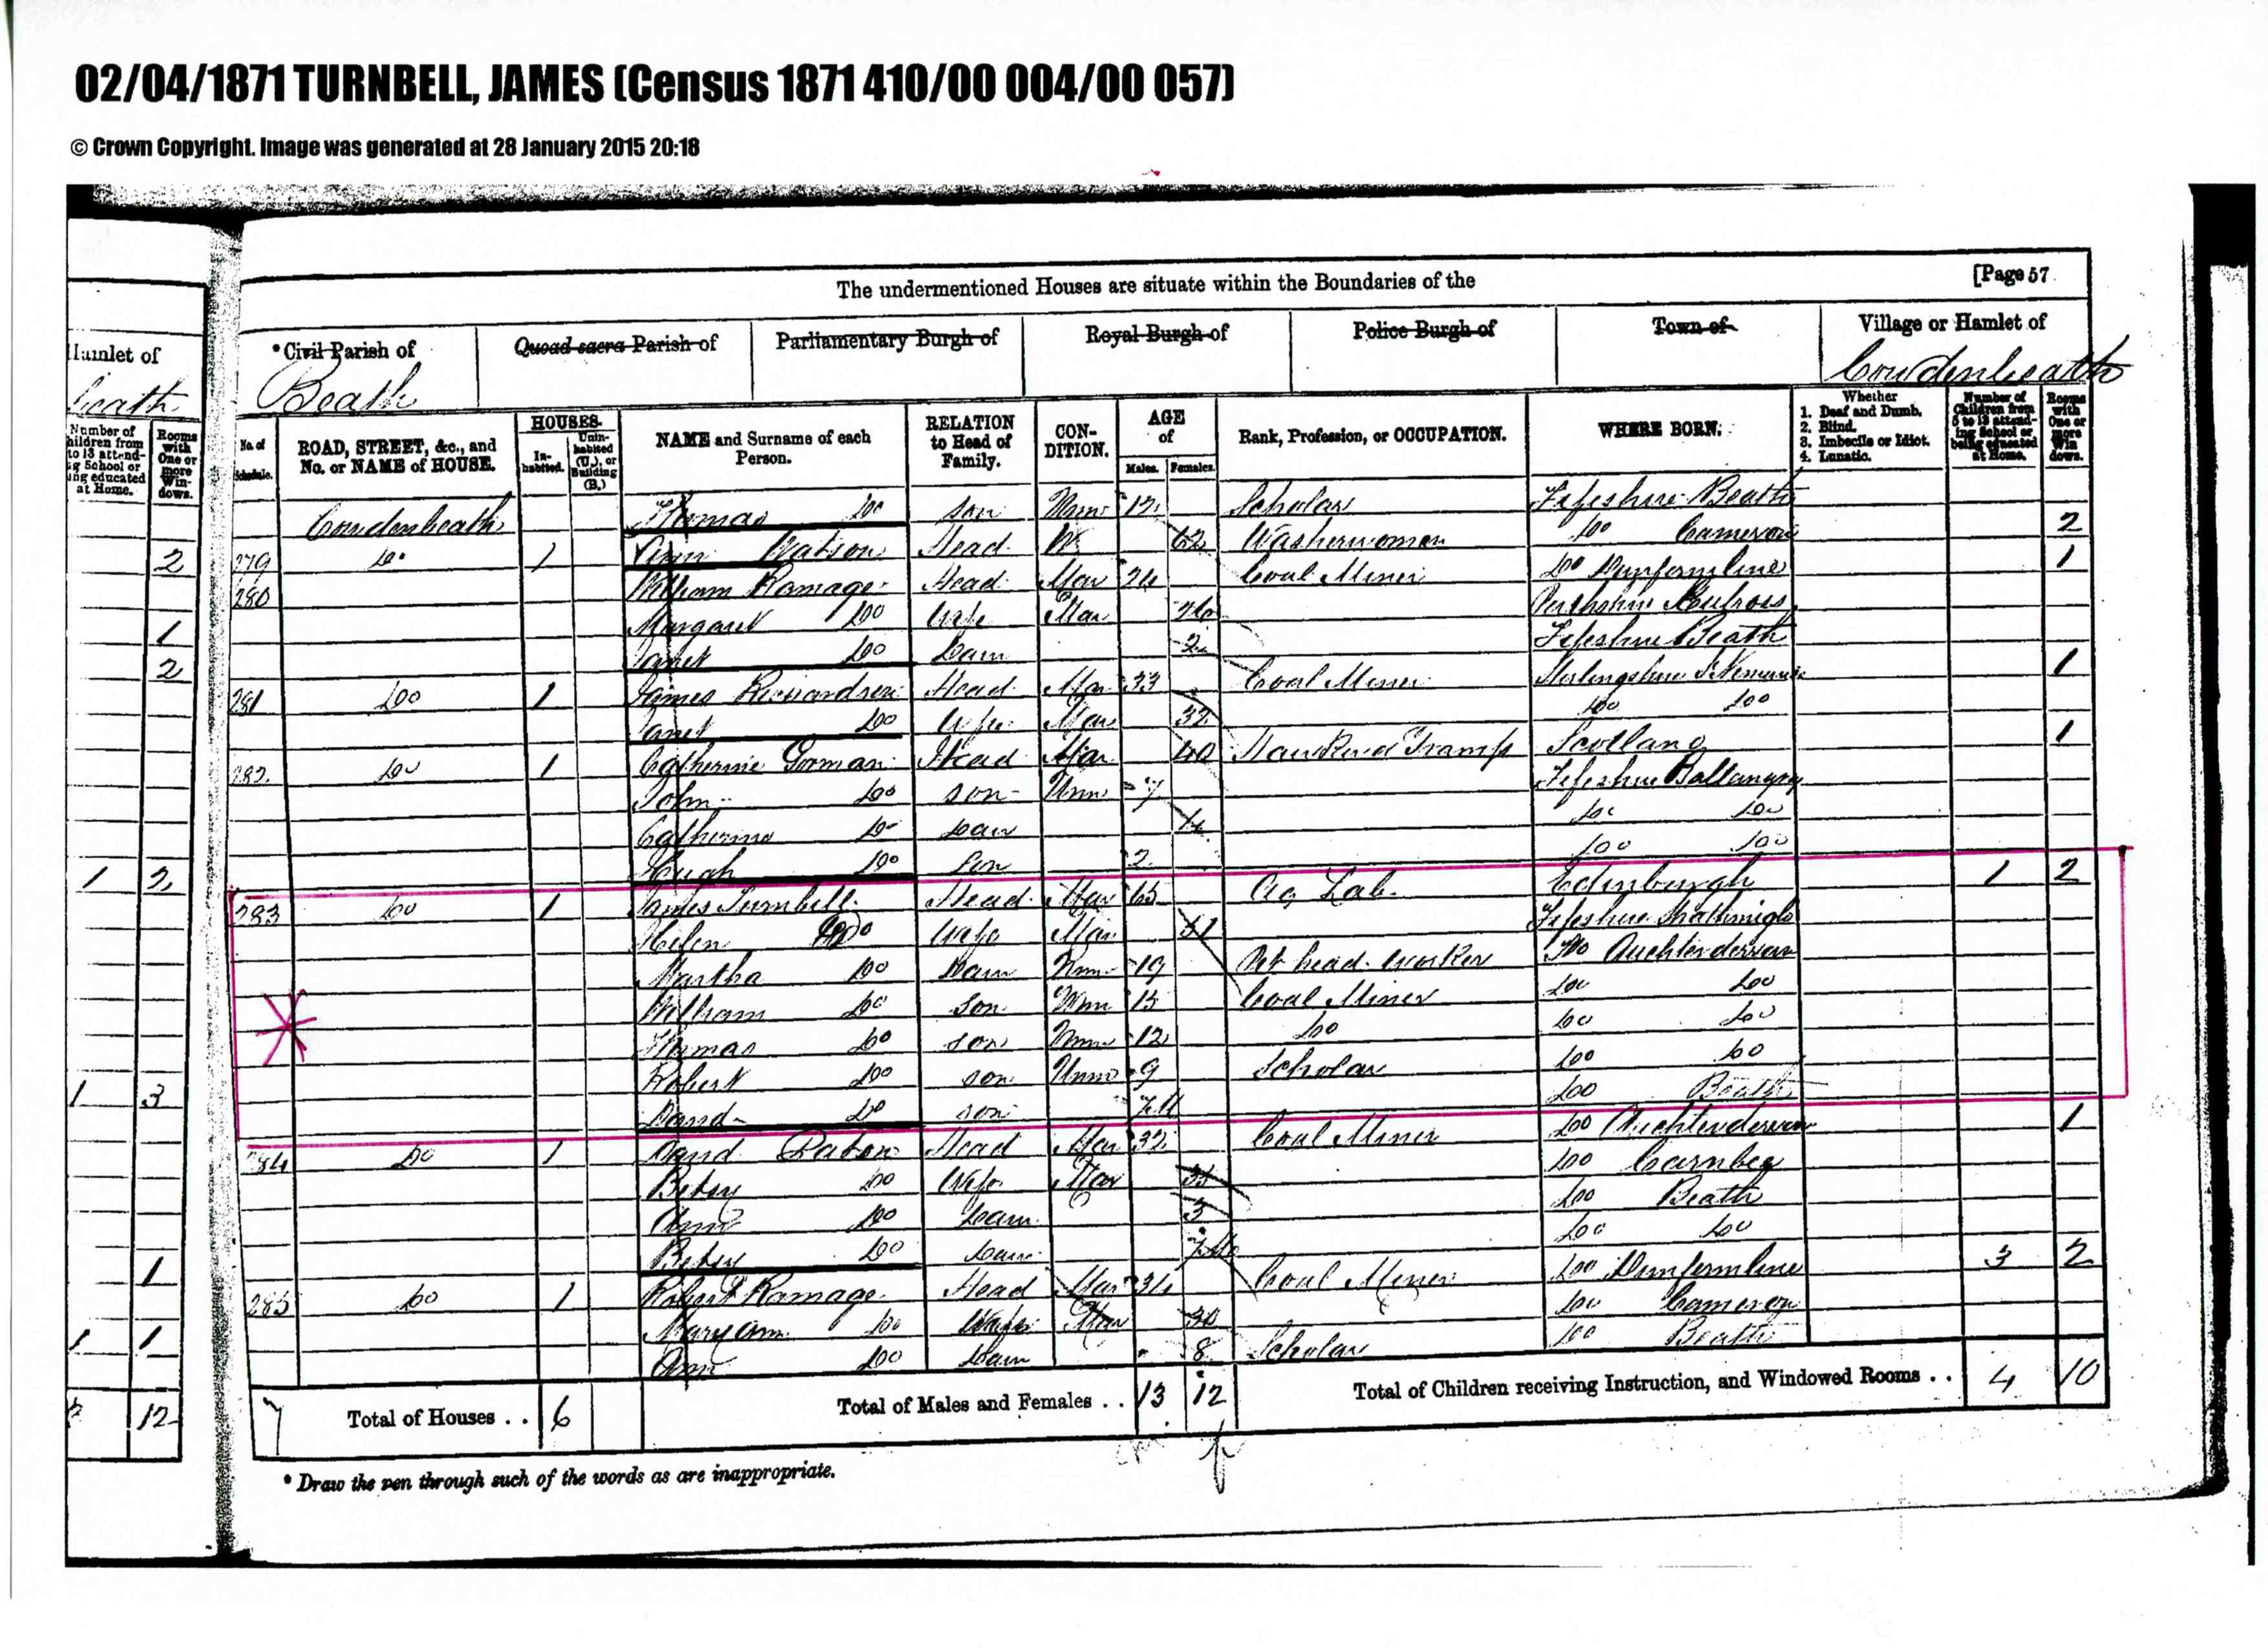 02/04/1871 TURNBELL, JAMES (Census 1871 410/00 004/00 057)
© Crown Copyright. Image was generated at 28 January 2015 20:18
The undermentioned Houses are situate within the Boundaries of the [Page 57
Hamlet of
eath
Number of hildren from to 13 attend- g School or ng educated at Home. Rooms with One or more Win- dows.
*Civil Parish of Quoad sacra Parish of Parliamentary Burgh of Royal Burgh of Police Burgh of Town of Village or Hamlet of
Beath Cowdenbeath
No. of Schedule. ROAD, STREET, &c., and No. or NAME of HOUSE. HOUSES. In-habited. Unin-habited (U.), or Building (B.) NAME and Surname of each Person. RELATION to Head of Family. CON-DITION. AGE of Males. Females. Rank, Profession, or OCCUPATION. WHERE BORN. Whether 1. Deaf and Dumb. 2. Blind. 3. Imbecile or Idiot. 4. Lunatic. Number of Children from 5 to 13 attend-ing School or being educated at Home. Rooms with One or more Win dows.
Cowdenbeath Thomas Do son Unm 12 Scholar Fifeshire Beath
2 279 Do 1 Ann Watson Head W 62 Washerwoman Do Cameron 2
280 William Ramage Head Mar 24 Coal Miner Do Dunfermline 1
1 Margaret Do Wife Mar Perthshire Culross
2 Janet Do Daur 2 Fifeshire Beath
281 Do 1 James Richardson Head Mar 33 Coal Miner Stirlingshire St Ninians 1
Janet Do Wife Mar 32 Do Do
282 Do 1 Catherine Gorman Head Mar 40 Tramp Scotland 1
John Do son Unm 7 Fifeshire Ballangry
Catherine Do Daur 4 Do Do
1 2 Hugh Do Son 2 Do Do
283 Do 1 James Turnbell Head Mar 65 Ag Lab. Edinburgh 1 2
Helen Do Wife Mar 51 Fifeshire Strathmiglo
Martha Do Daur Unm 19 Pit head worker Do Auchterderran
William Do son Unm 15 Coal Miner Do Do
Thomas Do son Unm 12 Do Do Do
Robert Do son Unm 9 Scholar Do Do
1 3 David Do son 7M Do Beath
284 Do 1 David Paton Head Mar 32 Coal Miner Do Auchterderran 1
Betsy Do Wife Mar Do Carnbee
Ann Do Daur 3 Do Beath
Betsy Do Daur Do Do
1 285 Do 1 Robert Ramage Head Mar 34 Coal Miner Do Dunfermline 3 2
1 1 Mary Ann Do Wife Mar 30 Do Cameron
Ann Do Daur 8 Scholar Do Beath
12 7 Total of Houses . . 6 Total of Males and Females . . 13 12 Total of Children receiving Instruction, and Windowed Rooms . . 4 10
* Draw the pen through such of the words as are inappropriate.